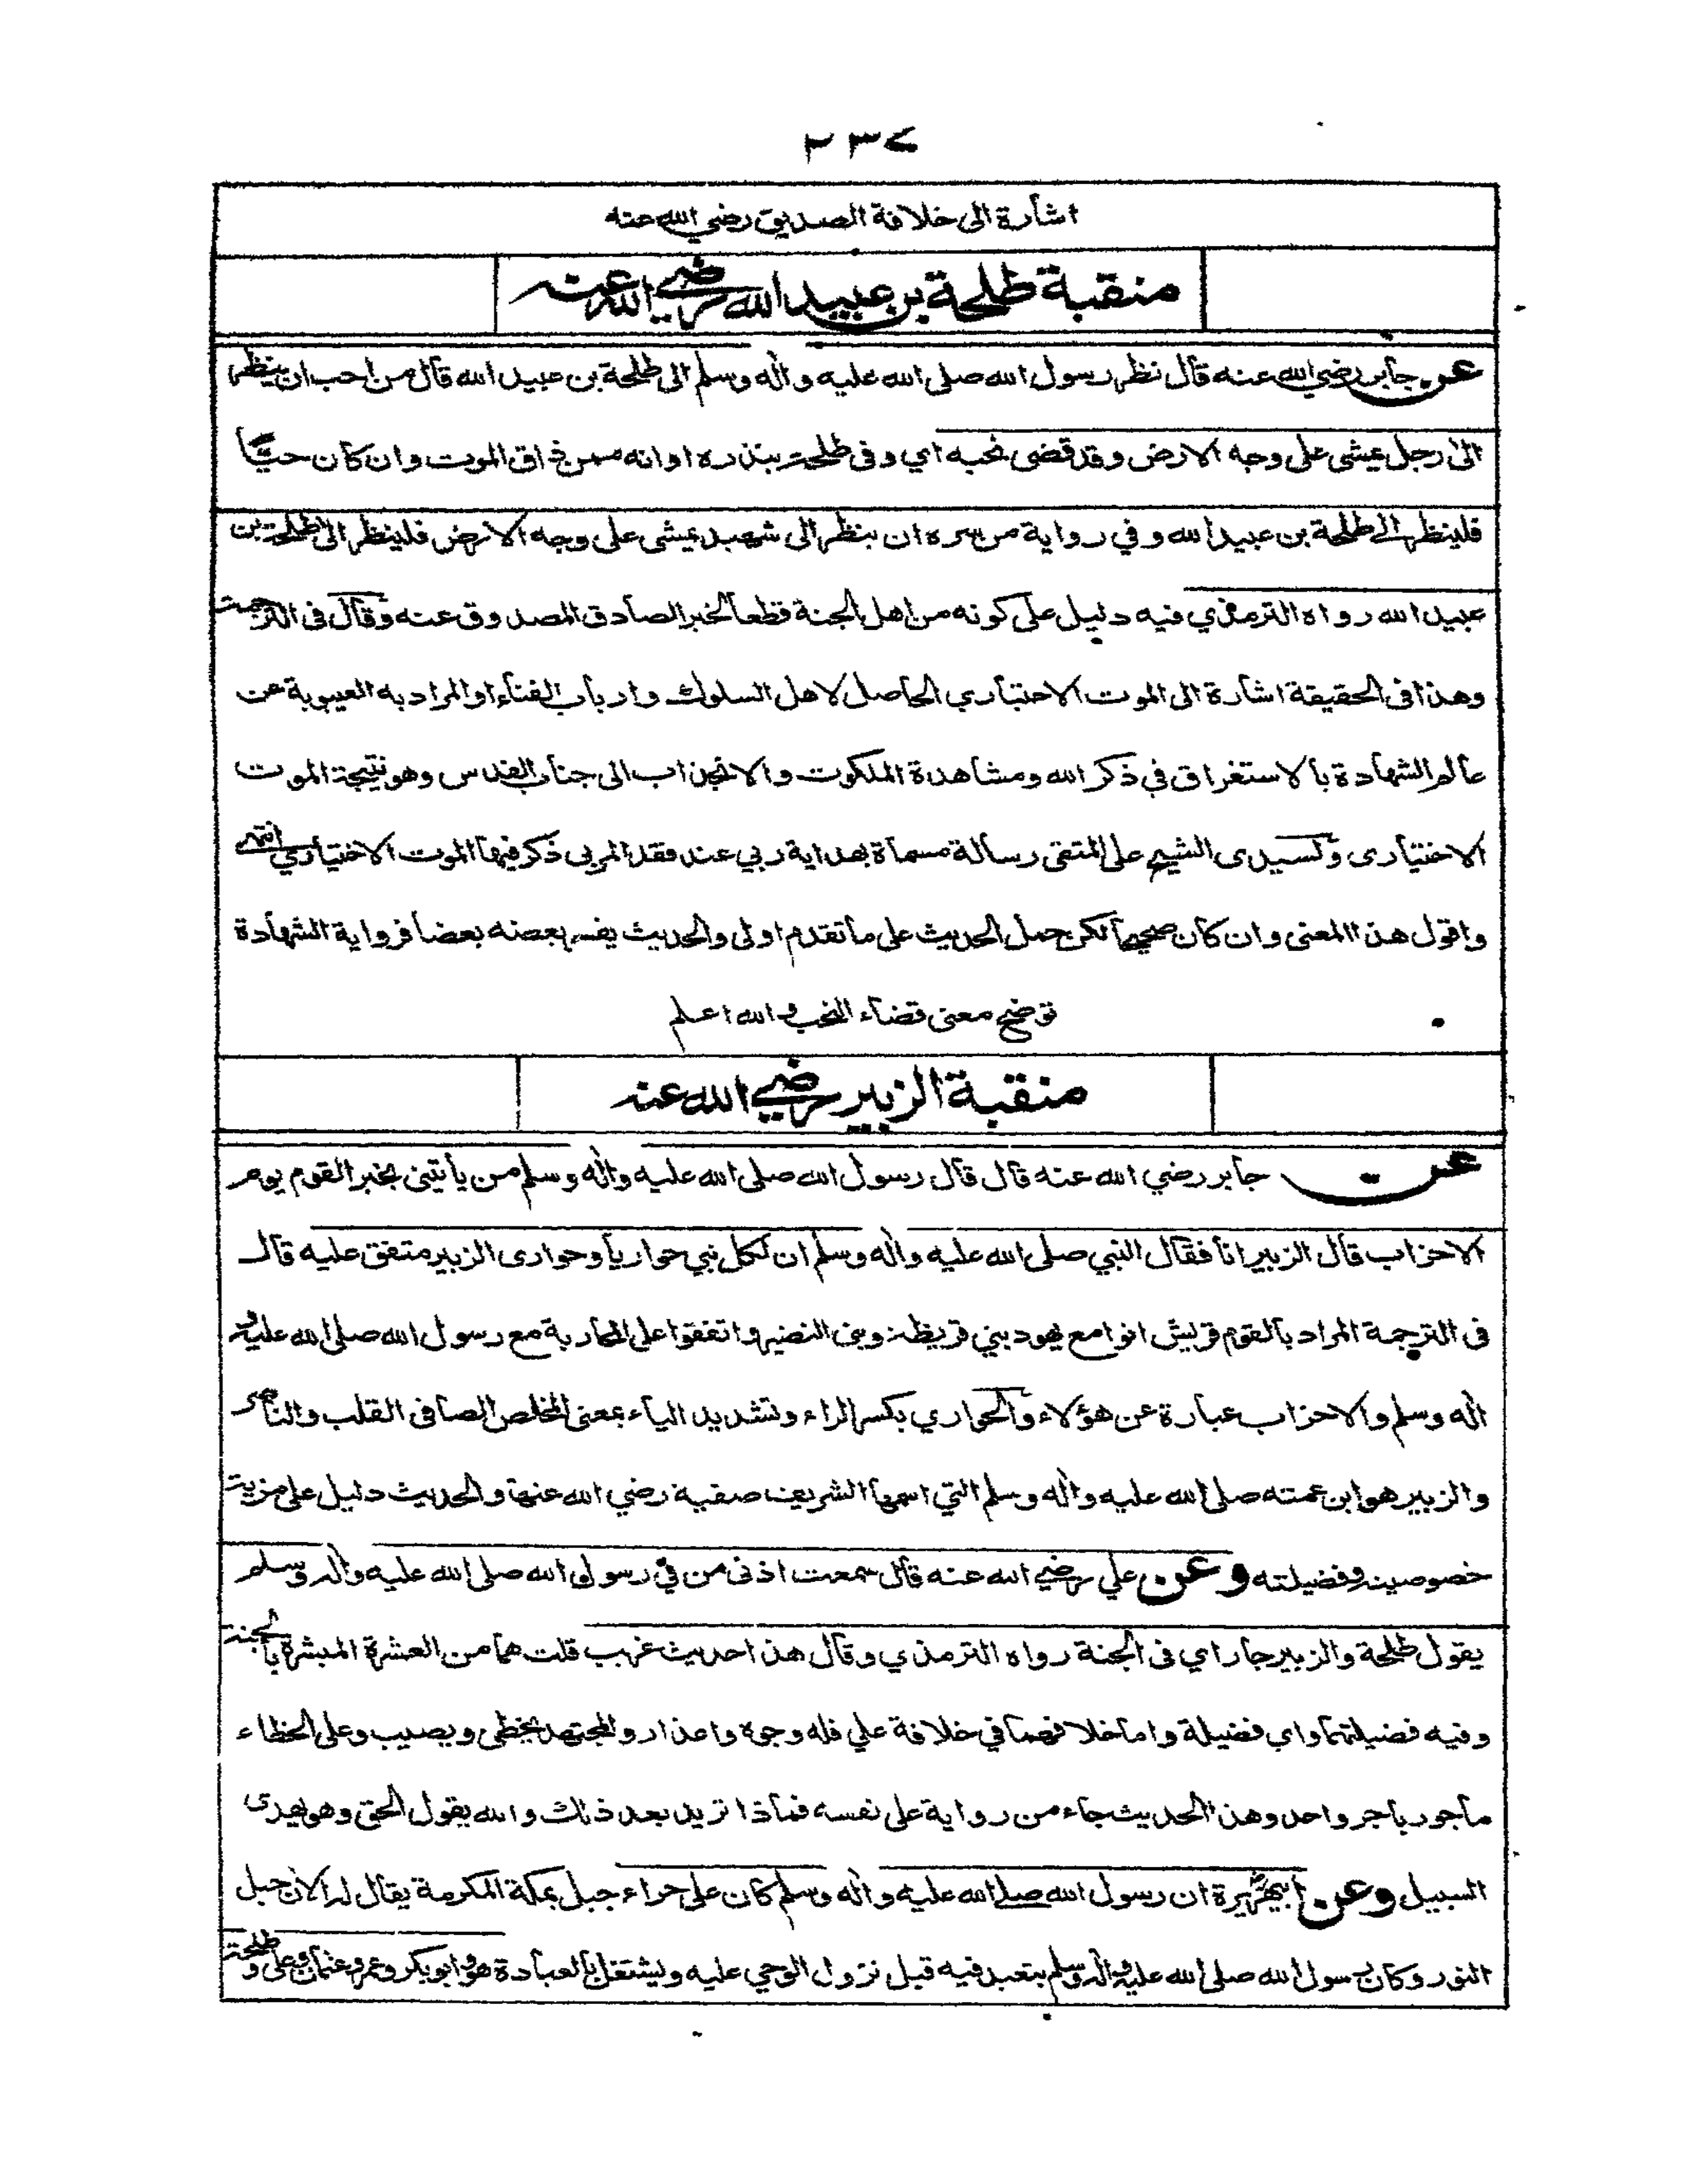 ٢٣٧
اشارة الى خلافة الصديق رضي الله عنه
منقبة طلحة بن عبيد الله رضي الله عنه
عن جابر رضي الله عنه قال نظر رسول الله صلى الله عليه واله وسلم الى طلحة بن عبيد الله قال من احب ان ينظر
الى رجل يمشى على وجه الارض وقد قضى نحبه اي وفى طلحة بنذره او انه ممن ذاق الموت وان كان حيّا
فلينظر الى طلحة بن عبيد الله وفي رواية من سره ان ينظر الى شهيد يمشى على وجه الارض فلينظر الى طلحة بن
عبيد الله رواه الترمذي فيه دليل على كونه من اهل الجنة قطعا لخبر الصادق المصدوق عنه وقال فى الترجمة
وهذا فى الحقيقة اشارة الى الموت الاختياري الحاصل لاهل السلوك وارباب الفناء او المراد به الغيبوبة عن
عالم الشهادة بالاستغراق في ذكر الله ومشاهدة الملكوت والانجذاب الى جناب القدس وهو نتيجة الموت
الاختيارى ولسيدى الشيخ على المتقى رسالة مسماة بهداية ربي عند فقد المربى ذكر فيها الموت الاختياري انتهى
واقول هذا المعنى وان كان صحيحا لكن حمل الحديث على ما تقدم اولى والحديث يفسر بعضه بعضا فرواية الشهادة
توضح معنى قضاء النحب والله اعلم
منقبة الزبير رضي الله عنه
عن جابر رضي الله عنه قال قال رسول الله صلى الله عليه واله وسلم من يأتينى بخبر القوم يوم
الاحزاب قال الزبير انا فقال النبي صلى الله عليه واله وسلم ان لكل نبي حواريا وحوارى الزبير متفق عليه قال
فى الترجمة المراد بالقوم قريش اتوا مع يهود بني قريظة وبنى النضير واتفقوا على المحاربة مع رسول الله صلى الله عليه و
اله وسلم والاحزاب عبارة عن هؤلاء والحواري بكسر الراء وتشديد الياء بمعنى المخلص الصافى القلب والناصر
والزبير هو ابن عمته صلى الله عليه واله وسلم التي اسمها الشريف صفية رضي الله عنها والحديث دليل على مزية
خصوصيته وفضيلته وعن علي رضي الله عنه قال سمعت اذنى من في رسول الله صلى الله عليه واله وسلم
يقول طلحة والزبير جاراي فى الجنة رواه الترمذي وقال هذا حديث غريب قلت هما من العشرة المبشرة بالجنة
وفيه فضيلتهما واي فضيلة واما خلافهما في خلافة علي فله وجوه واعذار والمجتهد يخطى ويصيب وعلى الخطاء
مأجور باجر واحد وهذا الحديث جاء من رواية على نفسه فماذا تريد بعد ذلك والله يقول الحق وهو يهدى
السبيل وعن ابي هريرة ان رسول الله صلى الله عليه واله وسلم كان على حراء جبل بمكة المكرمة يقال له الان جبل
النور وكان رسول الله صلى الله عليه واله وسلم يتعبد فيه قبل نزول الوحي عليه ويشتغل بالعبادة هو وابو بكر وعمر وعثمان وعلى و طلحة